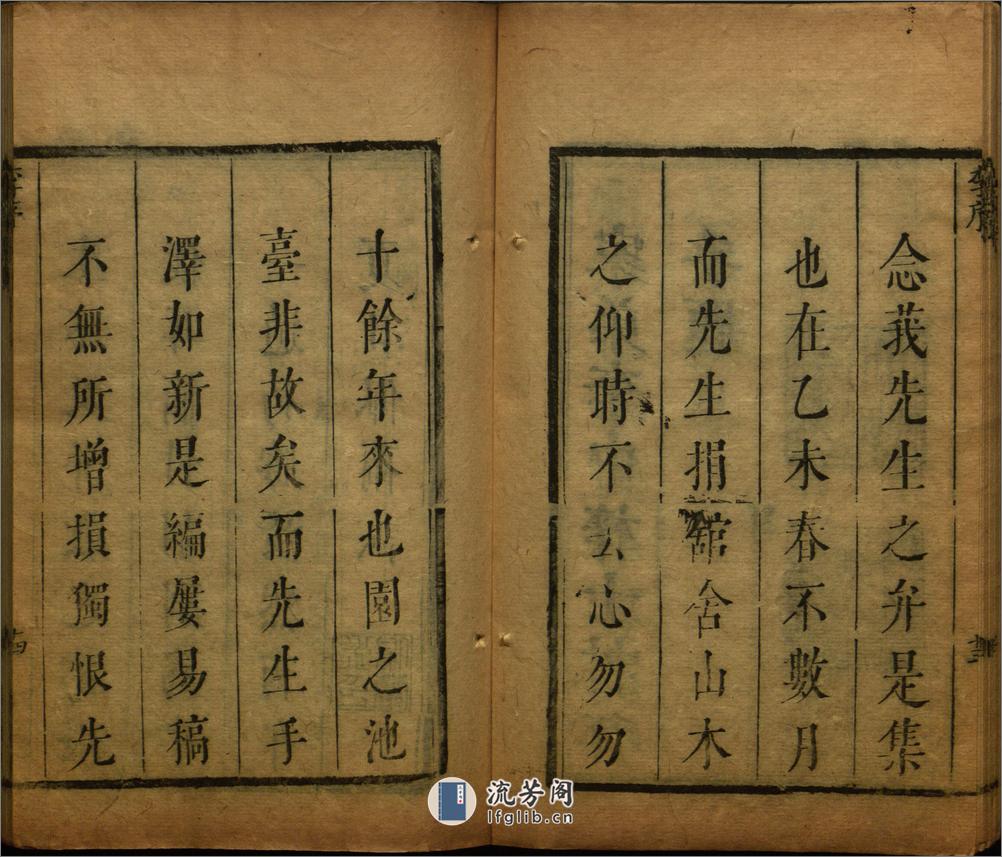 念莪先生之弁是集
也在乙未春不數月
而先生捐舘舍山木
之仰時不去心勿勿
十餘年來也園之池
臺非故矣而先生手
澤如新是編屢易稿
不無所增損獨恨先
流芳阁
lfglib.cn